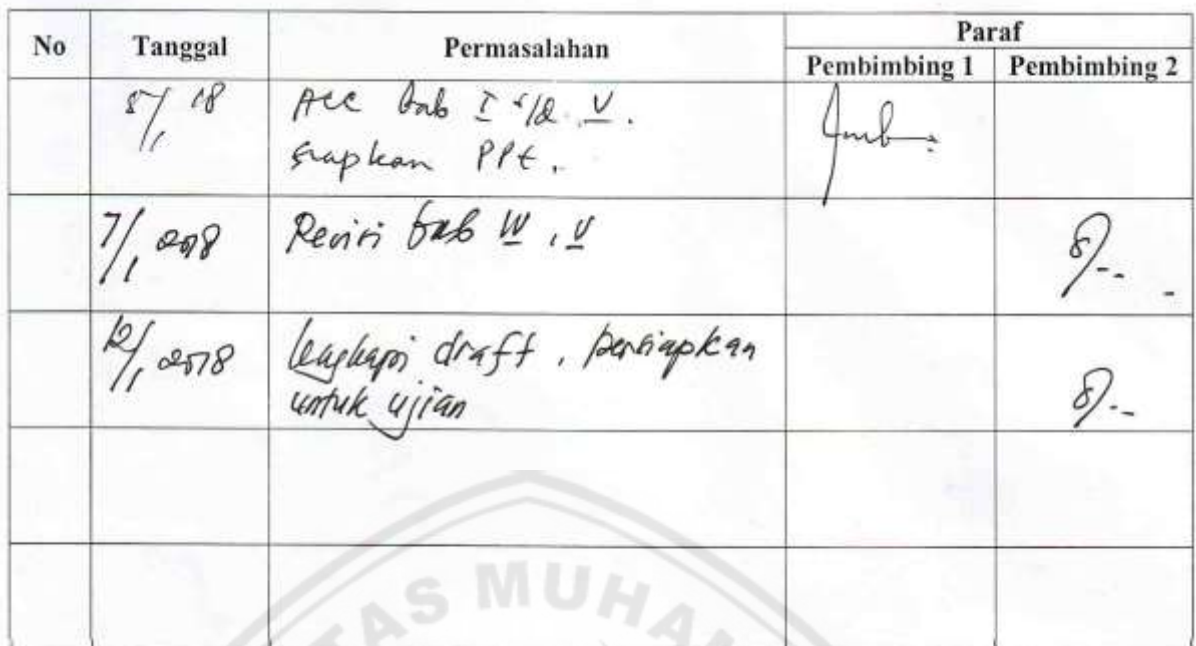 No Tanggal Permasalahan Paraf
Pembimbing 1 Pembimbing 2
5/1 18 Acc bab I s/d V.
siapkan PPt.
7/1 2018 Revisi bab IV, V
12/1 2018 lengkapi draft, persiapkan
untuk ujian
TAS MUHAM